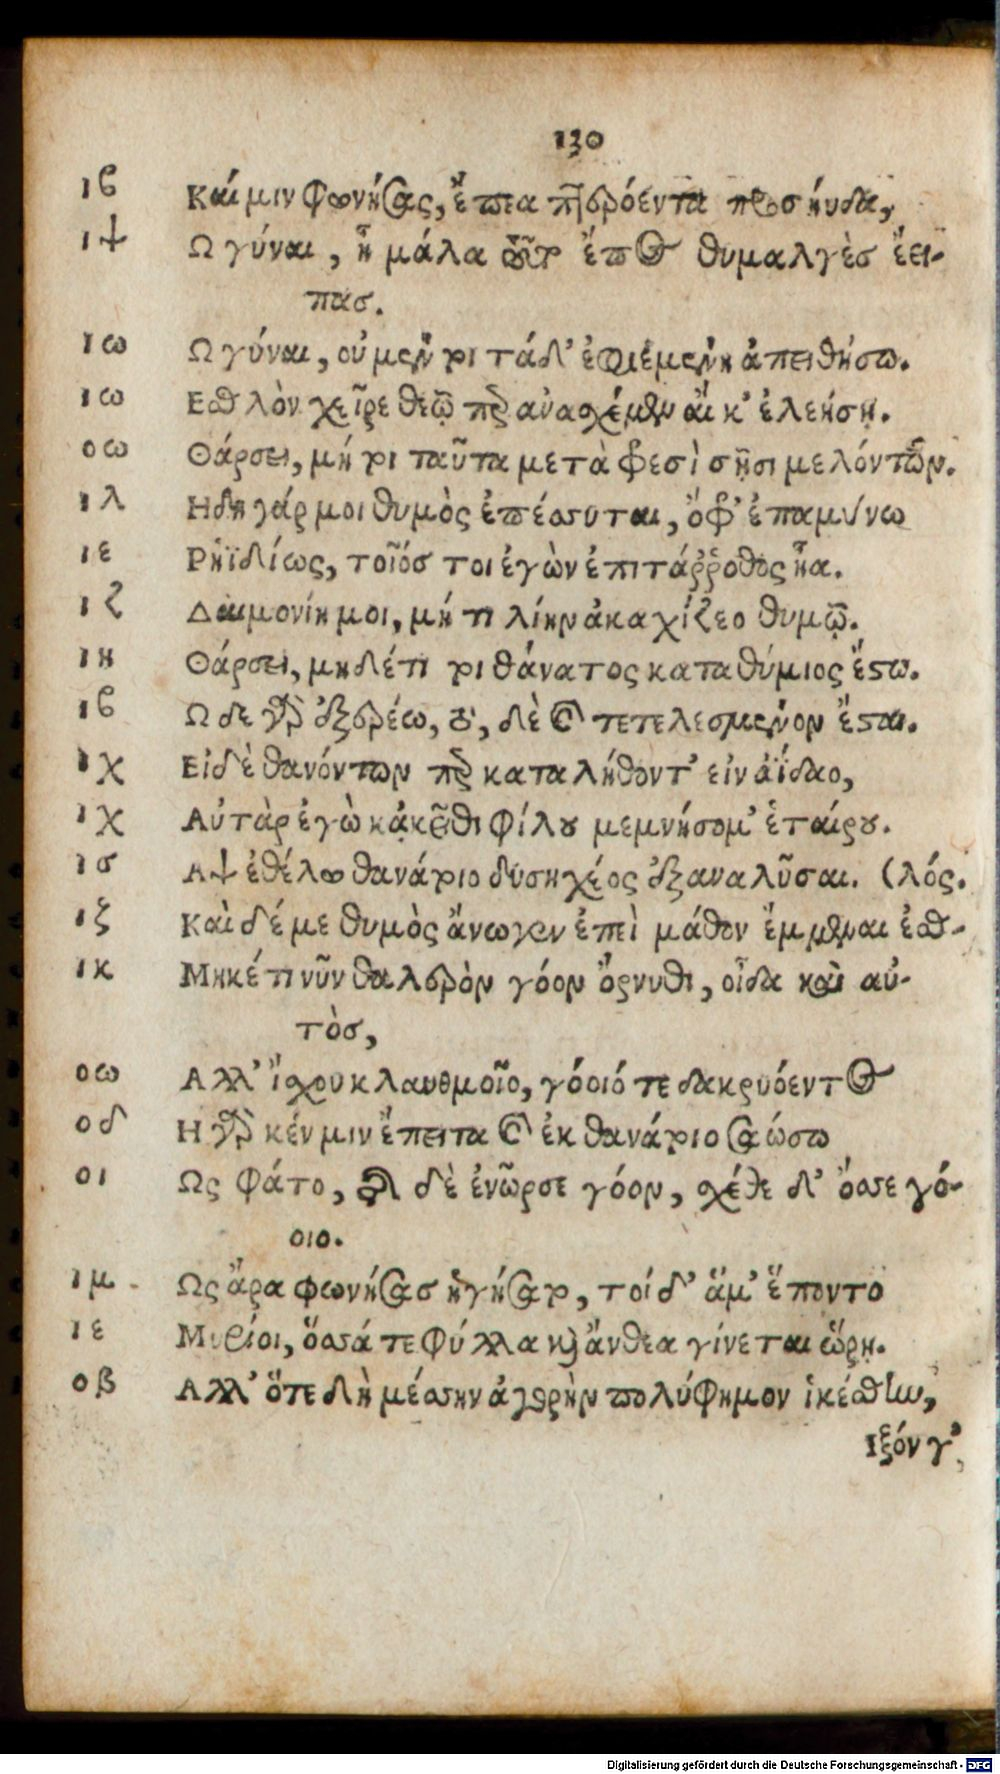 130
ιβ Καί μιν φωνήσας, ἔπεα πτερόεντα προσηύδα,
ιψ Ω γύναι, ἦ μάλα τοῦτο ἔπος θυμαλγὲσ ἔει-
πασ.
ιω Ω γύναι, οὐ μέν τοι τάδ' ἐφιεμένη ἀπειθήσω.
ιω Εσθλὸν χεῖρε θεῷ πρὸς ἀνασχέμεν αἴ κ' ἐλεήσῃ.
οω Θάρσει, μή τοι ταῦτα μετὰ φρεσὶ σῇσι μελόντων.
ιλ Ηδη γάρ μοι θυμὸς ἐπέσσυται, ὄφρ' ἐπαμύνω
ιε Ρηϊδίως, τοῖόσ τοι ἐγὼν ἐπιτάῤῥοθος ἦα.
ιζ Δαιμονίη μοι, μή τι λίην ἀκαχίζεο θυμῷ.
ιη Θάρσει, μηδέ τί τοι θάνατος καταθύμιος ἔστω.
ιβ Ω δε γὰρ ἐξερέω, τὸ, δὲ καὶ τετελεσμένον ἔσται.
ιχ Εἰ δὲ θανόντων περ καταλήθοντ' εἰν ἀΐδαο,
ιχ Αὐτὰρ ἐγὼ κἀκεῖθι φίλου μεμνήσομ' ἑταίρου.
ισ Αψ ἐθέλω θανάτοιο δυσηχέος ἐξαναλῦσαι. (λός.
ιξ Καὶ δέ με θυμὸς ἄνωγεν ἐπὶ μάθον ἔμμεναι ἐσθ-
ικ Μηκέτι νῦν θαλερὸν γόον ὄρνυθι, οἶδα καὶ αὐ-
τὸσ,
οω Αλλ' ἴσχου κλαυθμοῖο, γόοιό τε δακρυόεντος
οδ Η γὰρ κέν μιν ἔπειτα καὶ ἐκ θανάτοιο σαώσω
οι Ως φάτο, τῆς δὲ ἐνῶρσε γόον, σχέθε δ' ὄσσε γό-
οιο.
ιμ Ως ἄρα φωνήσασ ἡγήσατο, τοί δ' ἅμ' ἕποντο
ιε Μυρίοι, ὅσσά τε φύλλα καὶ ἄνθεα γίνεται ὥρῃ.
οβ Αλλ' ὅτε δὴ μέσσην ἀγορὴν πολύφημον ἱκέσθην,
Ιξόν γ'
Digitalisierung gefördert durch die Deutsche Forschungsgemeinschaft - DFG